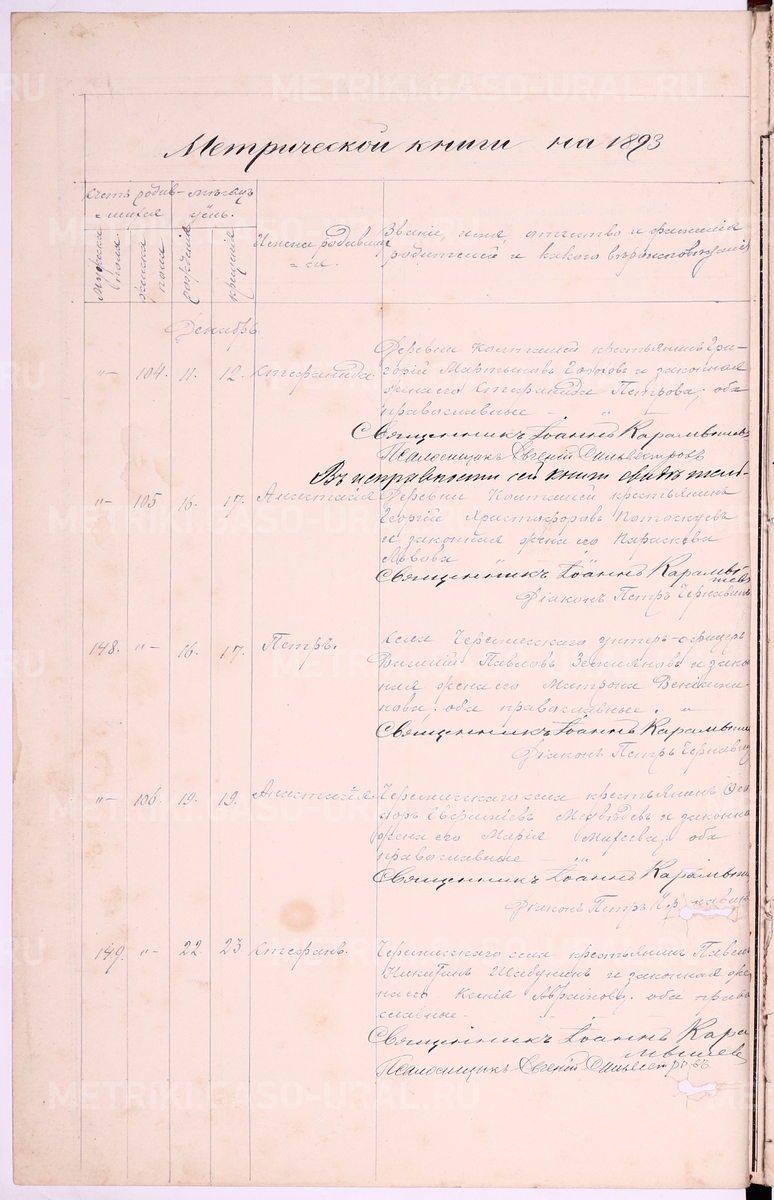 Метрической книги на 1893
Счетъ родив-
шихся
Мѣсяцъ
день.
Мужска
пола.
женска
пола
рожденія
крещенія
Имена родивших
ся.
Званіе, имя, отчество и фамилія
родителей и какого вѣроисповѣданія
Декабрь
"– 104. 11. 12. Стефанида
Деревни Колташей крестьянинъ Гри-
горій Мартыновъ и законная
жена его Стефанида Петрова; оба
православные
Священникъ Іоаннъ Карамышевъ
Псаломщикъ Евгеній Сильвестровъ
Въ исправности сей книги свидѣтель-
"– 105 16. 17. Анастасія
Деревни Колташей крестьянинъ
Георгій Христофоровъ Потоскуевъ
и законная жена его Параскева
Львова
Священникъ Іоаннъ Карамы-
шевъ
Діаконъ Петръ Чернавинъ
148. "– 16. 17. Петръ.
Села Черемисскаго унтеръ-офицеръ
Василій Павловъ Земляновъ и закон
ная жена его Матрона
оба православные. "–
Священникъ Іоаннъ Карамыш
Діаконъ Петръ Чернавин
"– 106. 19. 19. Анастасія
Черемисскаго села крестьянинъ Ѳео
доръ Медвѣдевъ и законна
жена его Марія Михеева; оба
православные
Священникъ Іоаннъ Карамыш
Діаконъ Петръ Чернавинъ
149. "– 22. 23. Стефанъ.
Черемисскаго села крестьянинъ Павелъ
Никитинъ Шабунинъ и законная же
на его Ксенія оба право
славные.
Священникъ Іоаннъ Кара
мышевъ
Псаломщикъ Евгеній Сильвестровъ
METRIKI.GASO-URAL.RU